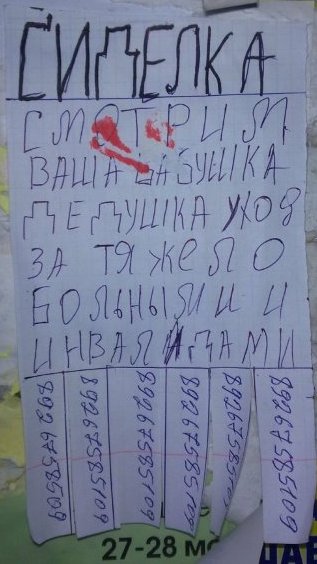 СИДЕЛКА
СМОТРИМ
ВАША БАБУШКА
ДЕДУШКА УХОД
ЗА ТЯЖЕЛО
БОЛЬНЫМИ И
ИНВАЛИДАМИ
89267585109
89267585109
89267585109
89267585109
89267585109
89267585109
27-28